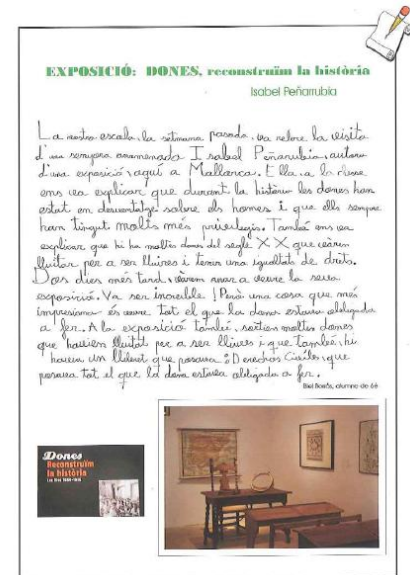 EXPOSICIÓ: DONES, reconstruïm la història
Isabel Peñarrubia
La nostra escola, la setmana passada, va rebre la visita
d'una senyora anomenada Isabel Penarubia, autora
d'una exposició, aquí a Mallorca. Ella, a la classe
ens va explicar que durant la història les dones han
estat en desventatge sobre els homes i que ells sempre
han tingut molts més privilegis. També ens va
explicar que hi ha moltes dones del segle XX que varen
lluitar per a ser lliures i tenir una igualtat de drets.
Dos dies més tard, vàrem anar a veure la seva
exposició. Va ser increïble! Però una cosa que més
impresiona és veure tot el que la dona estava obligada
a fer. A la exposició també, sortien moltes dones
que havien lluitat per a ser lliures i que també, hi
havia un llibret que posava: Derechos Civiles, que
posava tot el que la dona estava obligada a fer.
Biel Barós, alumne de 6è
Dones
Reconstruïm
la història